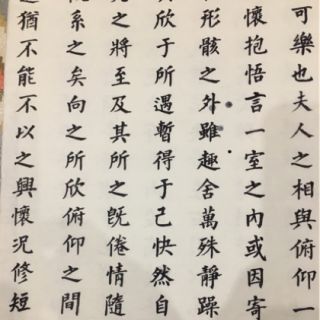 可樂也夫人之相與俯仰一
懷抱悟言一室之內或因寄
形骸之外雖趣舍萬殊靜躁
欣于所遇暫得于己快然自
之將至及其所之旣倦情隨
系之矣向之所欣俯仰之間
猶不能不以之興懷況修短